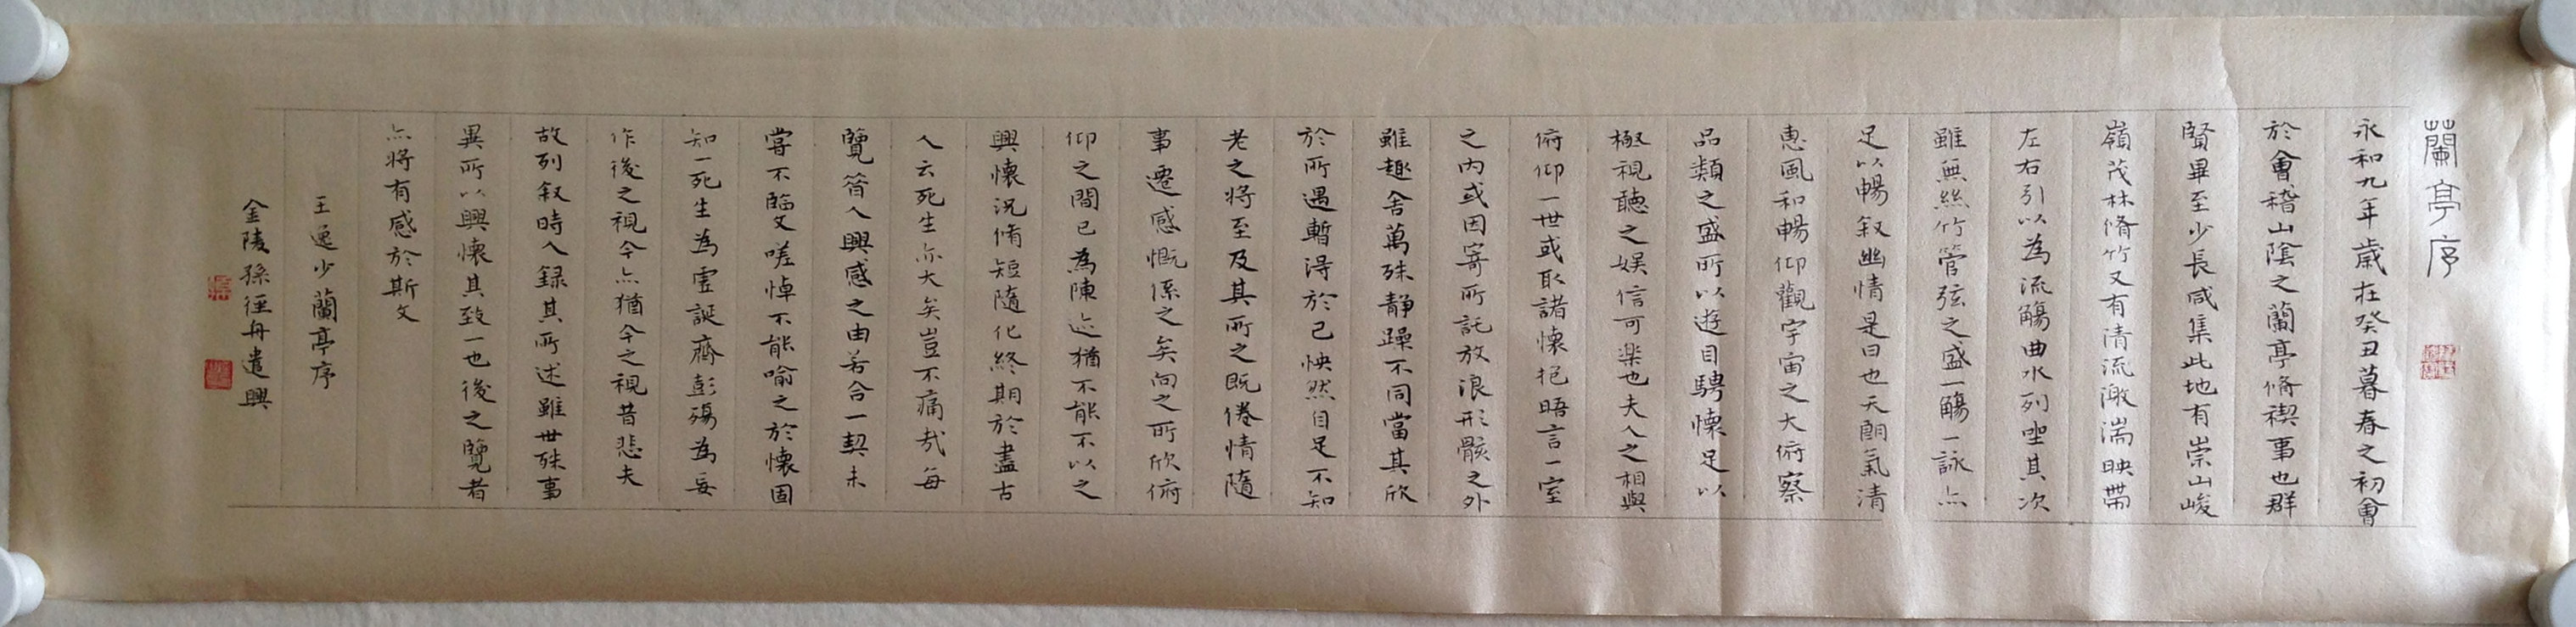 蘭亭序
永和九年歲在癸丑暮春之初會
於會稽山陰之蘭亭脩禊事也群
賢畢至少長咸集此地有崇山峻
嶺茂林脩竹又有清流激湍映帶
左右引以為流觴曲水列坐其次
雖無絲竹管弦之盛一觴一詠亦
足以暢叙幽情是日也天朗氣清
惠風和暢仰觀宇宙之大俯察
品類之盛所以遊目騁懷足以
極視聽之娛信可樂也夫人之相與
俯仰一世或取諸懷抱晤言一室
之內或因寄所託放浪形骸之外
雖趣舍萬殊靜躁不同當其欣
於所遇暫得於己怏然自足不知
老之將至及其所之既倦情隨
事遷感慨係之矣向之所欣俯
仰之間已為陳迹猶不能不以之
興懷況脩短隨化終期於盡古
人云死生亦大矣豈不痛哉每
覽昔人興感之由若合一契未
嘗不臨文嗟悼不能喻之於懷固
知一死生為虛誕齊彭殤為妄
作後之視今亦猶今之視昔悲夫
故列叙時人錄其所述雖世殊事
異所以興懷其致一也後之覽者
亦將有感於斯文
王逸少蘭亭序
金陵孫徑舟遣興